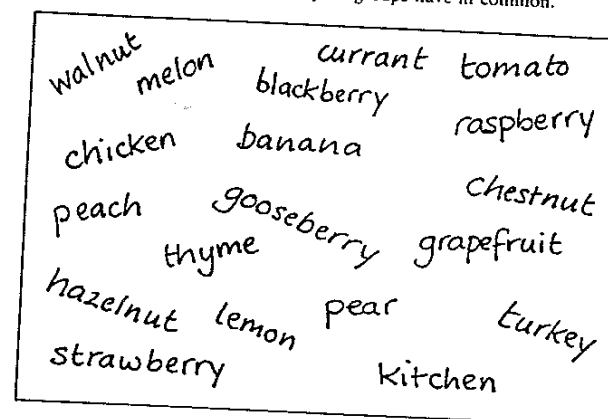 have in common.
walnut melon currant tomato
blackberry
raspberry
chicken banana
chestnut
peach gooseberry
thyme grapefruit
hazelnut lemon pear turkey
strawberry kitchen